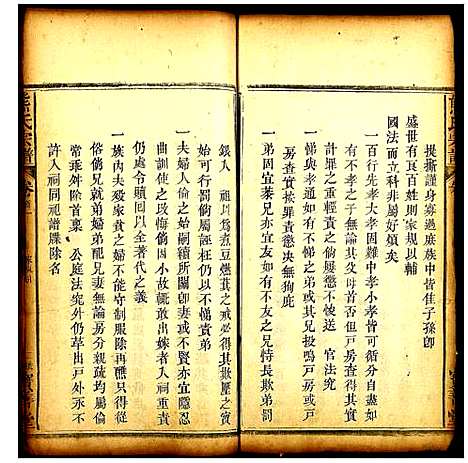 提撕謹身寡過庶族中皆佳子孫卽
盛世有良百姓則家規以輔
國法而立科非屬好煩矣
一百行先孝大孝固難中孝小孝皆可循分自盡
有不孝之子無論其父母首否但戶房查得其實
計罪之重輕責之倘屢懲不悛送 官究治
一悌與孝通如有不悌之弟或其兄投鳴戶房或戶
房查實按罪責懲決無狗庇
一弟固宜恭兄亦宜友如有不友之兄恃長欺弟罰
銀入 祠以爲煮豆燃萁之戒必得其欺壓之實
始可行罰倘屬誣枉仍以不悌責弟
一夫婦人倫之始嗣續所關卽妻或不賢亦宜
曲訓使之改悔倘因小故輒敢出嫁者入祠重責
仍處令贖回以全著代之義
一族內夫歿家貧之婦不能守制服除再醮只得從
俗倘兄就弟婦弟配兄妻無論房分親疏均屬倫
常乖舛除首稟 公庭法究外仍草出戶外永不
許入祠同祀譜牒除名
熊氏宗譜